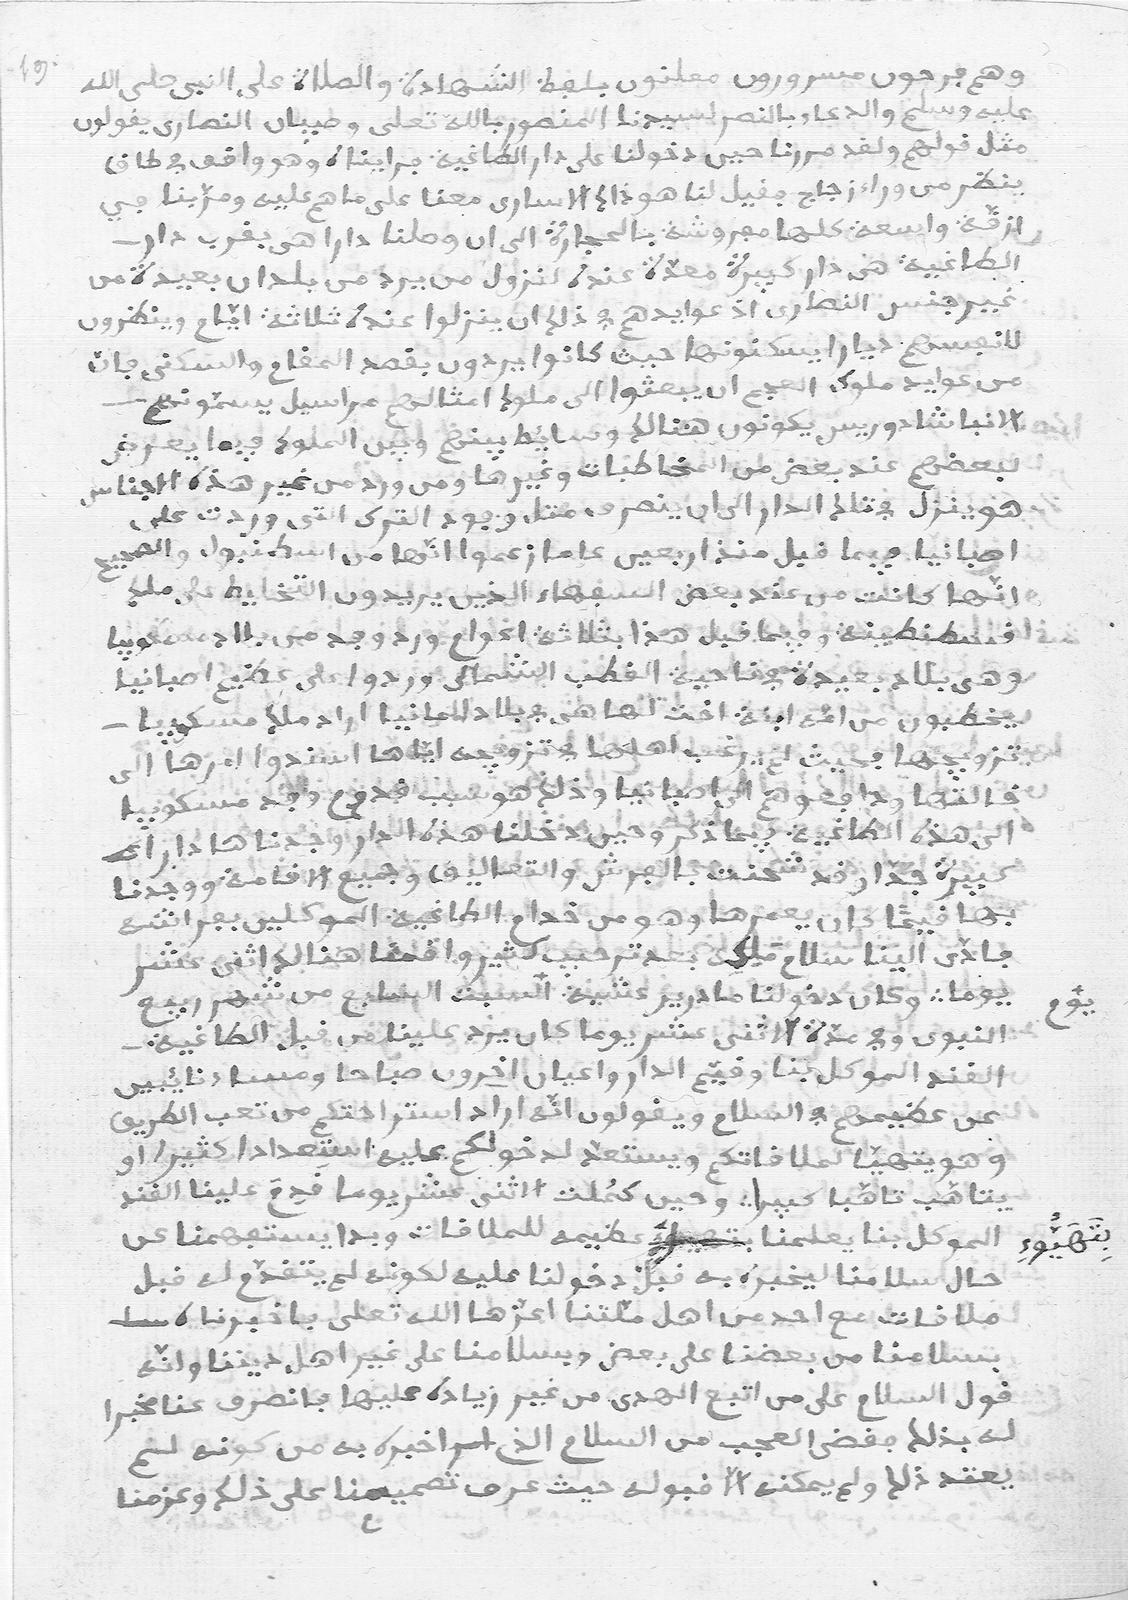 19.
وهم فرحون مسرورون معلنون بلفظ الشهادة والصلاة على النبي صلى الله
عليه وسلم والدعاء بالنصر لسيدنا المنصور بالله تعلى وصبيان النصارى يقولون
مثل قولهم ولقد مررنا حين دخولنا على دار الطاغية فرايناه وهو واقف في طاق
ينظر من وراء زجاج فقيل لنا هو ذاك الاسارى معنا على ما هم عليه ومر بنا في
ازقة واسعة كلها مفروشة بالحجارة الى ان وصلنا دارا هي بقرب دار
الطاغية هي دار كبيرة معدة عنده لنزول من يرد من بلدان بعيدة من
غير جنس النصارى اذ عوايدهم في ذلك ان ينزلوا عنده ثلاثة ايام وينظرون
لانفسهم ديارا يسكنونها حيث كانوا يردون بقصد المقام والسكنى فان
من عوايد ملوك العجم ان يبعثوا الى ملوك امثالهم مراسيل يسمونهم
الانباشادوريس يكونون هنالك وسايط بينهم وبين الملوك فيما يعرض
لبعضهم عند بعض من المخاطبات وغيرها ومن ورد من غير هذه الاجناس
هو ينزل في تلك الدار الى ان ينصرف مثل وجود الترك التى وردت على
اصبانيا فيما قبل منذ اربعين عاما زعموا انها من اسطنبول والصحيح
انها كانت من عند بعض السفهاء الذين يريدون التخليط على ملك
قسطنطينة وفيما قبل هذا بثلاثة اعوام ورد وفد من بلاد مسكوبيا
وهي بلاد بعيدة في ناحية القطب الشمالى وردوا على عظيم اصبانيا
يخطبون من امه ابنة اخت لها هي في بلاد المانيا اراد ملك مسكوبيا
تزويجها فحيث لم يرغب اهلها في تزويجه اياها اسندوا امرها الى
خالتها ودافعوهم الى اصبانيا وذلك هو سبب قدوم وفد مسكوبيا
الى هذه الطاغية فيما ذكر وحين دخلنا هذه الدار وجدناها دارا
كبيرة جدا وقد شحنت بالفرش والتعاليق وجميع الاقامة ووجدنا
بها قيما كان يعمرها وهو من خدام الطاغية الموكلين بفراشه
فادى الينا سلام ملكه بعد ترحيب كثير واقمنا هنالك اثنى عشر
يوما.: وكان دخولنا مادريد عشية السبت السابع من شهر ربيع
يوم
النبوى وفي مدة الاثنى عشر يوما كان يرد علينا من قبل الطاغية
القند الموكل بنا وقيم الدار واعيان اخرون صباحا ومساء نائبين
عن عظيمهم في السلام ويقولون انه اراد استراحتكم من تعب الطريق
وهو يتهيا لملاقاتكم ويستعد لدخولكم عليه استعدادا كثيرا او
يتاهب تاهبا كبيرا.: وحين كملت الاثنى عشر يوما قدم علينا القند
الموكل بنا يعلمنا عظيمه للملاقات وبدا يستفهمنا عن
بتهيؤ
حال سلامنا ليخبره به قبل دخولنا عليه لكونه لم يتقدم له قبل
ملاقات مع احد من اهل ملتنا اعزها الله تعلى فاخبرناه
بسلامنا من بعضنا على بعض وبسلامنا على غير اهل ديننا وانه
قول السلام على من اتبع الهدى من غير زيادة عليها فانصرف عنا مخبرا
له بذلك فقضى العجب من السلام الذى اخبره به من كونه لم
يعتد ذلك ولم يمكنه الا قبوله حيث عرف تصميمنا على ذلك وعزمنا